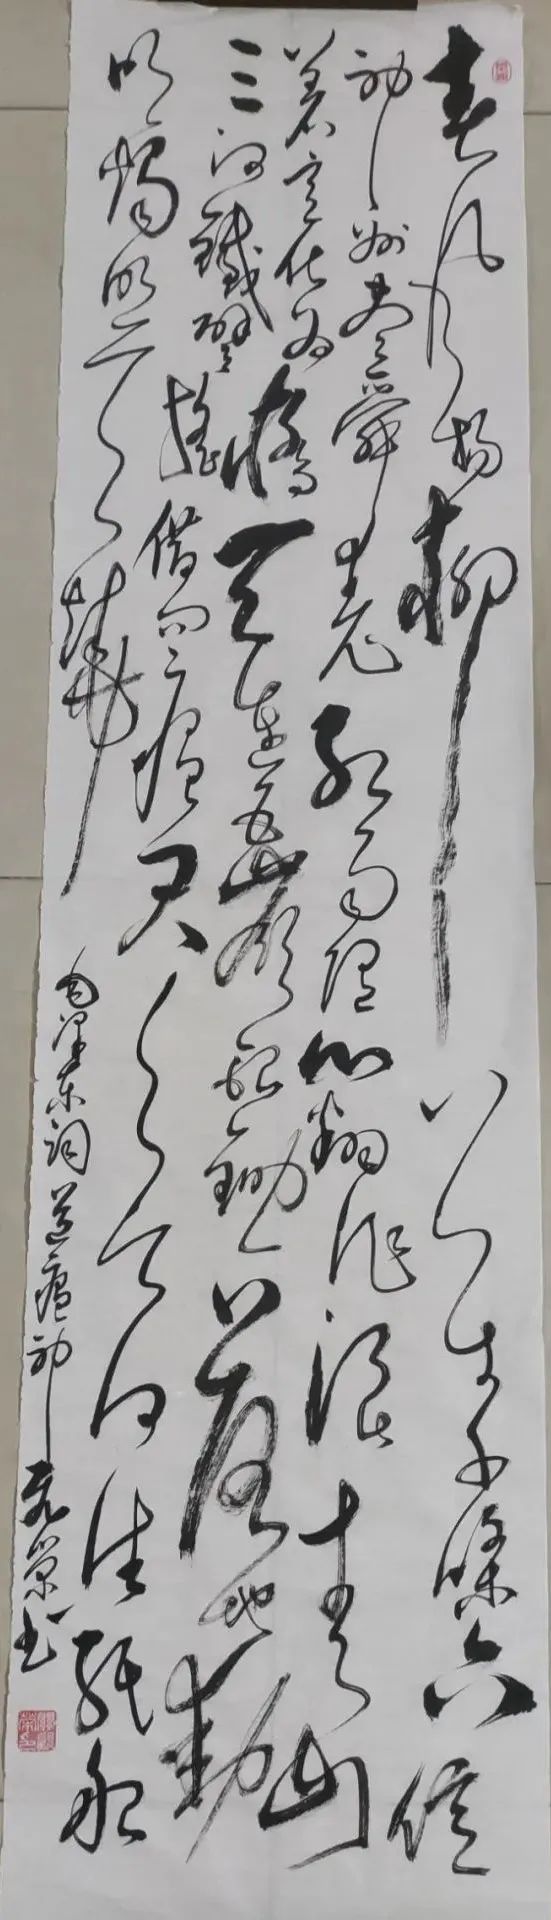 春风杨柳萬千條六億
神州尽舜尧红雨随心翻作浪青山
着意化为橋天连五岭银锄落地动
三河鐵臂摇借问瘟君欲何往纸船
明烛照天烧
毛泽东词送瘟神 荣书